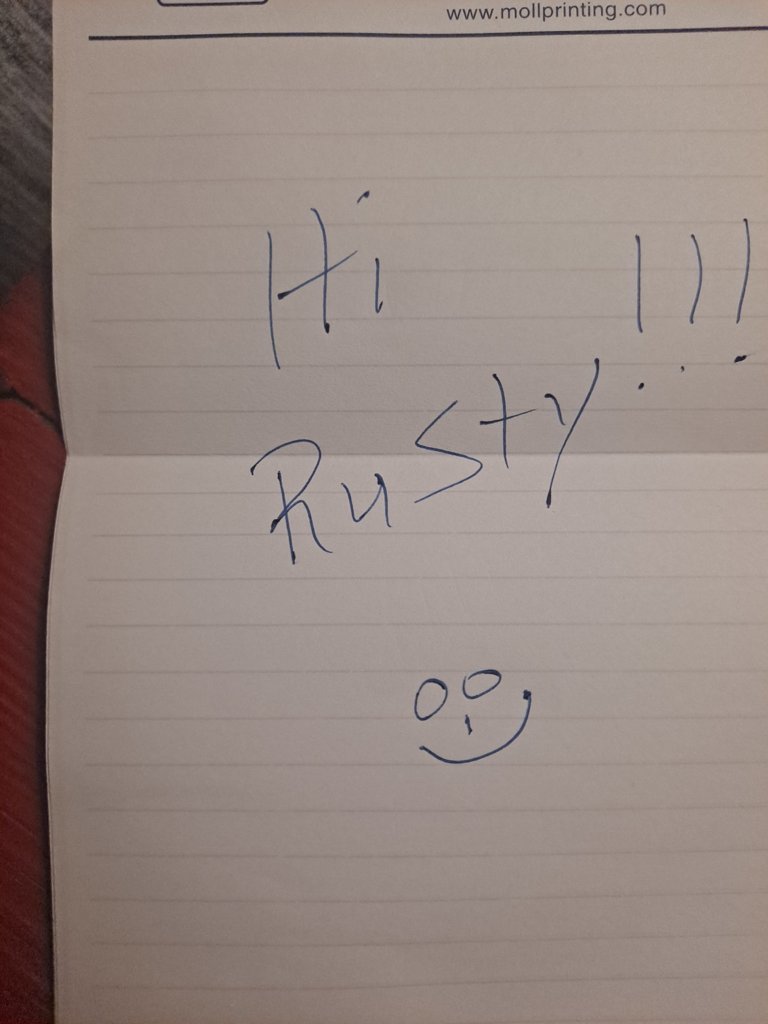 www.mollprinting.com
Hi
Rusty!!!